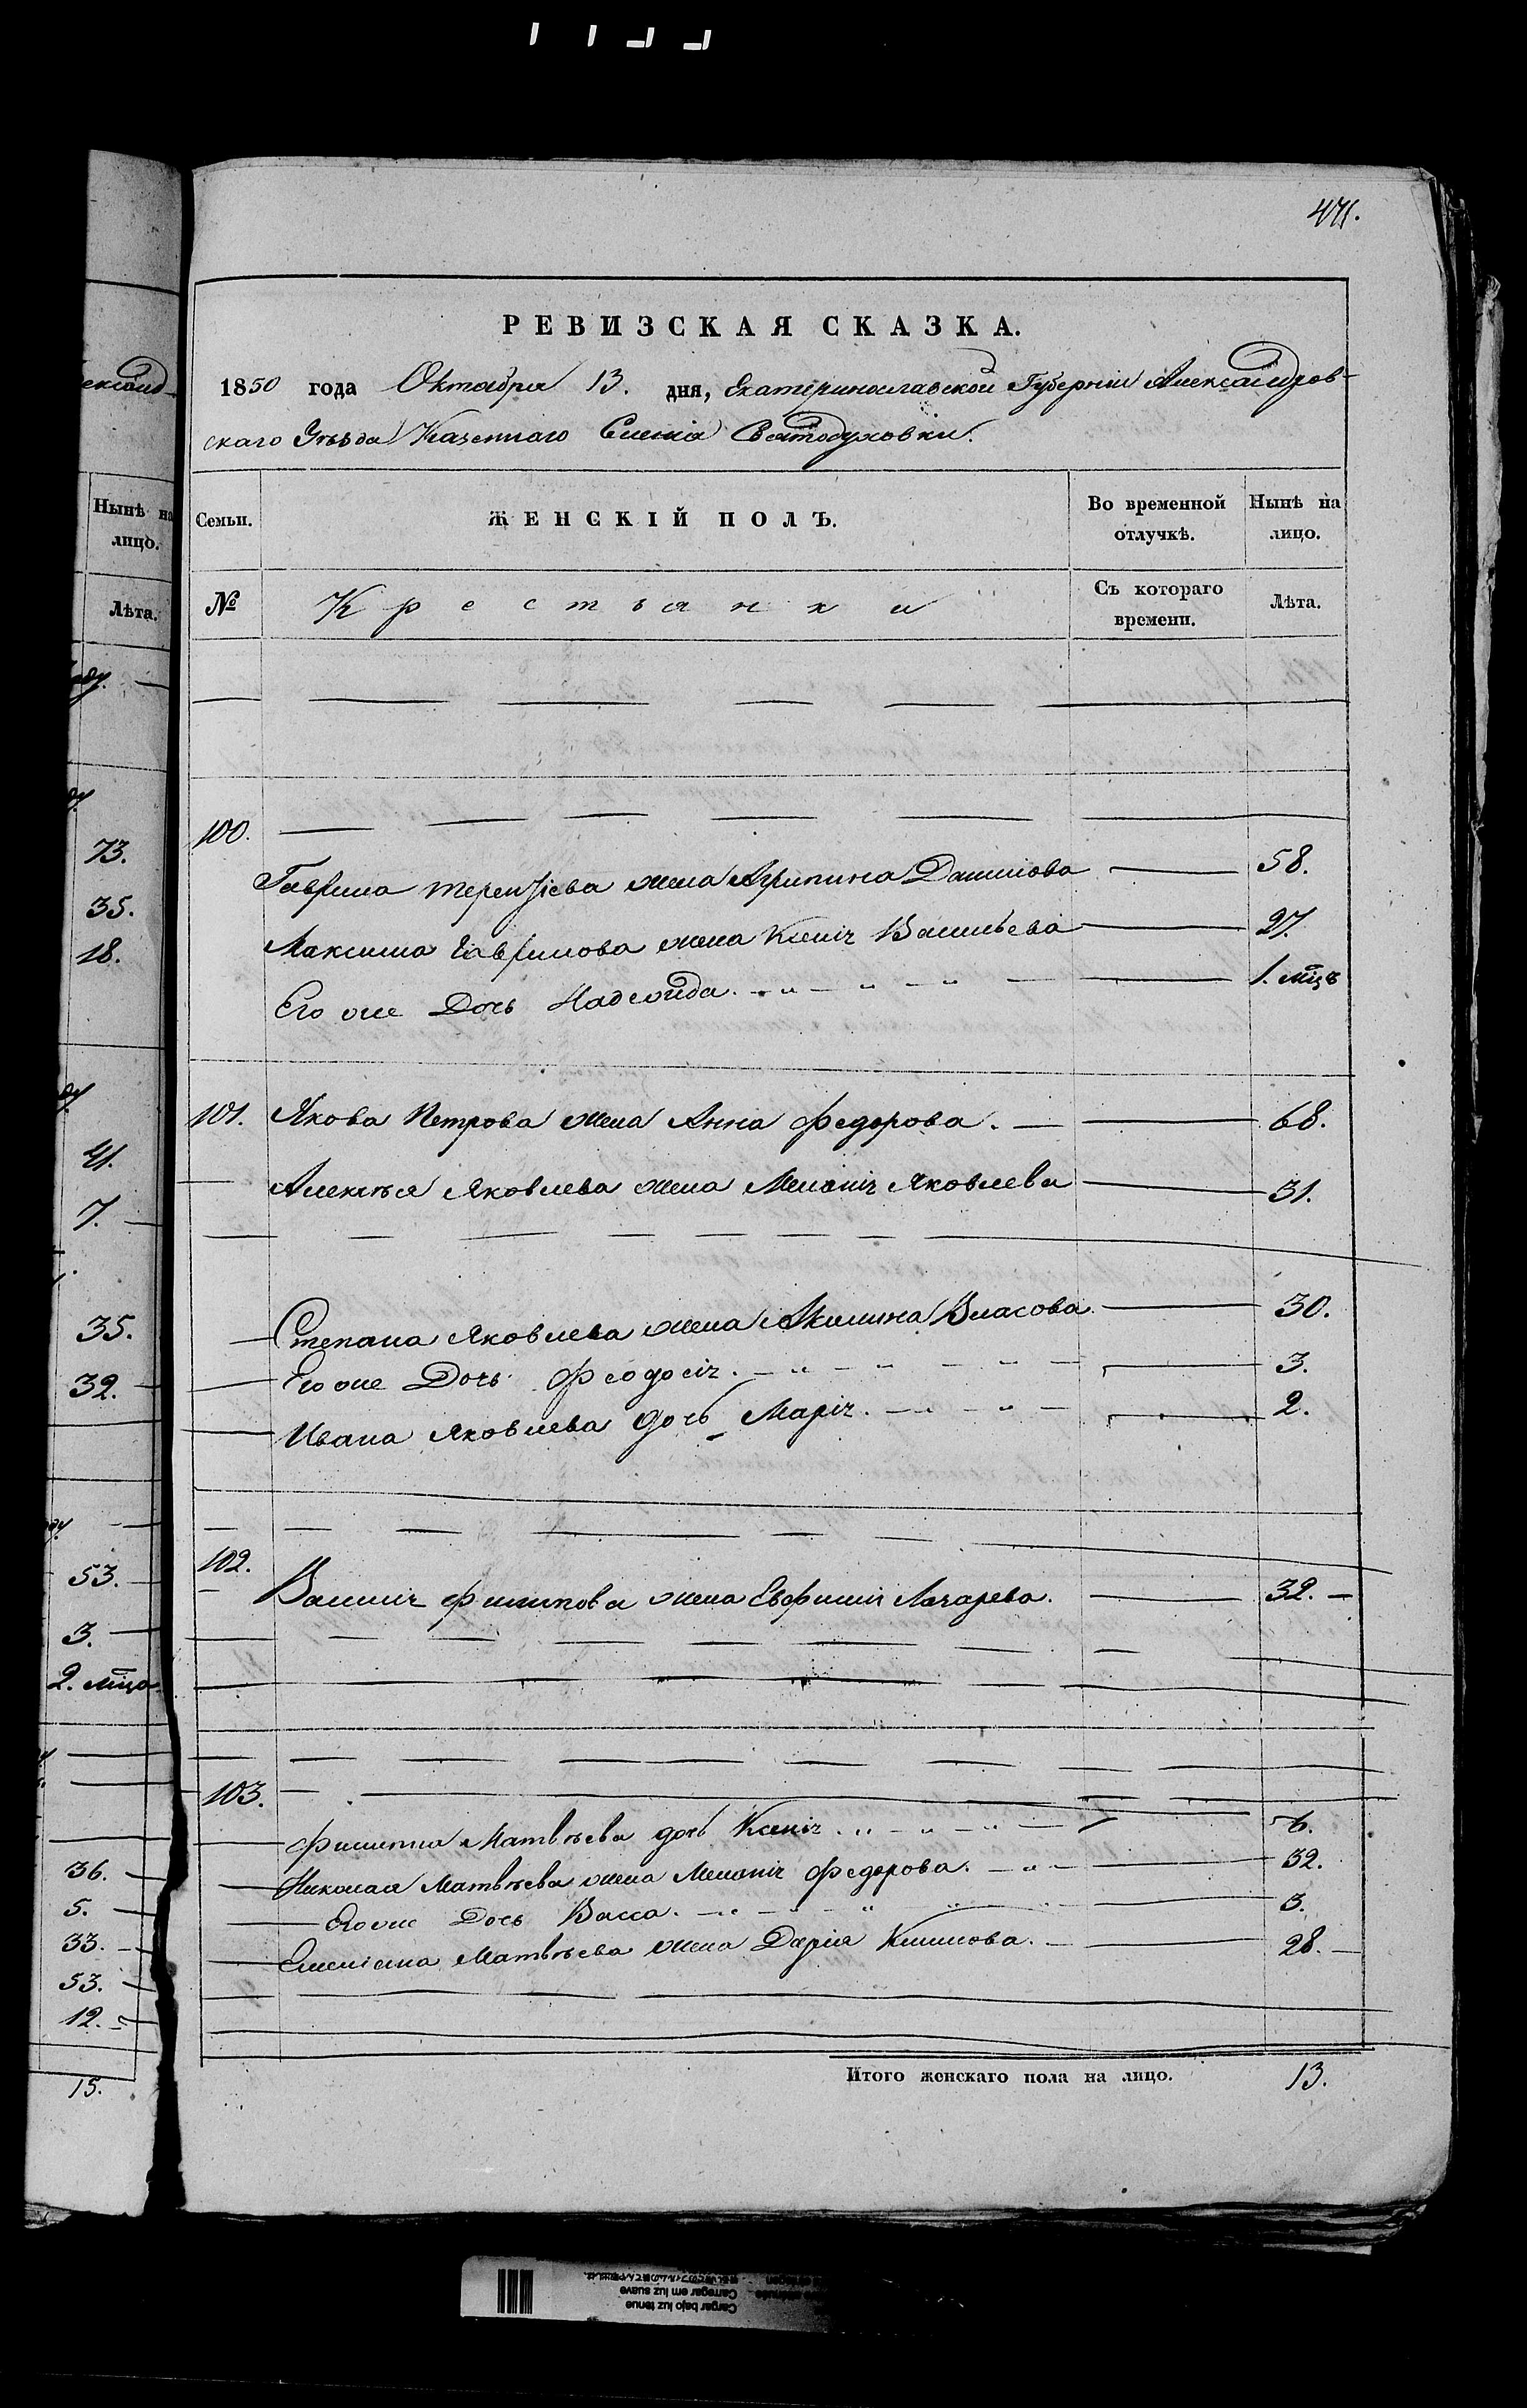 471.
РЕВИЗСКАЯ СКАЗКА.
1850 года Октября 13. дня, Екатеринославской Губерніи Александров-
скаго Уѣзда Казеннаго Селенія Святодуховки.
Нынѣ на лицо.
Лѣта.
Семьи.
ЖЕНСКІЙ ПОЛЪ.
Во временной отлучкѣ.
Нынѣ на лицо.
№
Крестьянки
Съ котораго времени.
Лѣта.
100.
Гаврила Терентіева жена Агрипина Данилова 58.
Максима Гаврилова жена Ксенія Васильева 27.
Его же Дочь Надежда. 1. мѣцъ
101. Якова Петрова жена Анна Федорова. 68.
Алексѣя Яковлева жена Меланія Яковлева 31.
Степана Яковлева жена Акилина Власова 30.
Его же Дочь Феодосія. 3.
Ивана Яковлева дочь Марія. 2.
102.
Василія Филипова жена Евфимія Лазарева. 32.
103.
Филиппа Матвѣева дочь Ксенія. 6.
Николая Матвѣева жена Меланія Федорова. 32.
Его же Дочь Васса. 3.
Емеліана Матвѣева жена Дарія Климова. 28.
Итого женскаго пола на лицо. 13.
73.
35.
18.
41.
7.
35.
32.
53.
3.
2. мѣца
36.
5.
33.
53.
12.
15.
Cargar bajo luz tenue
Carregar em luz suave